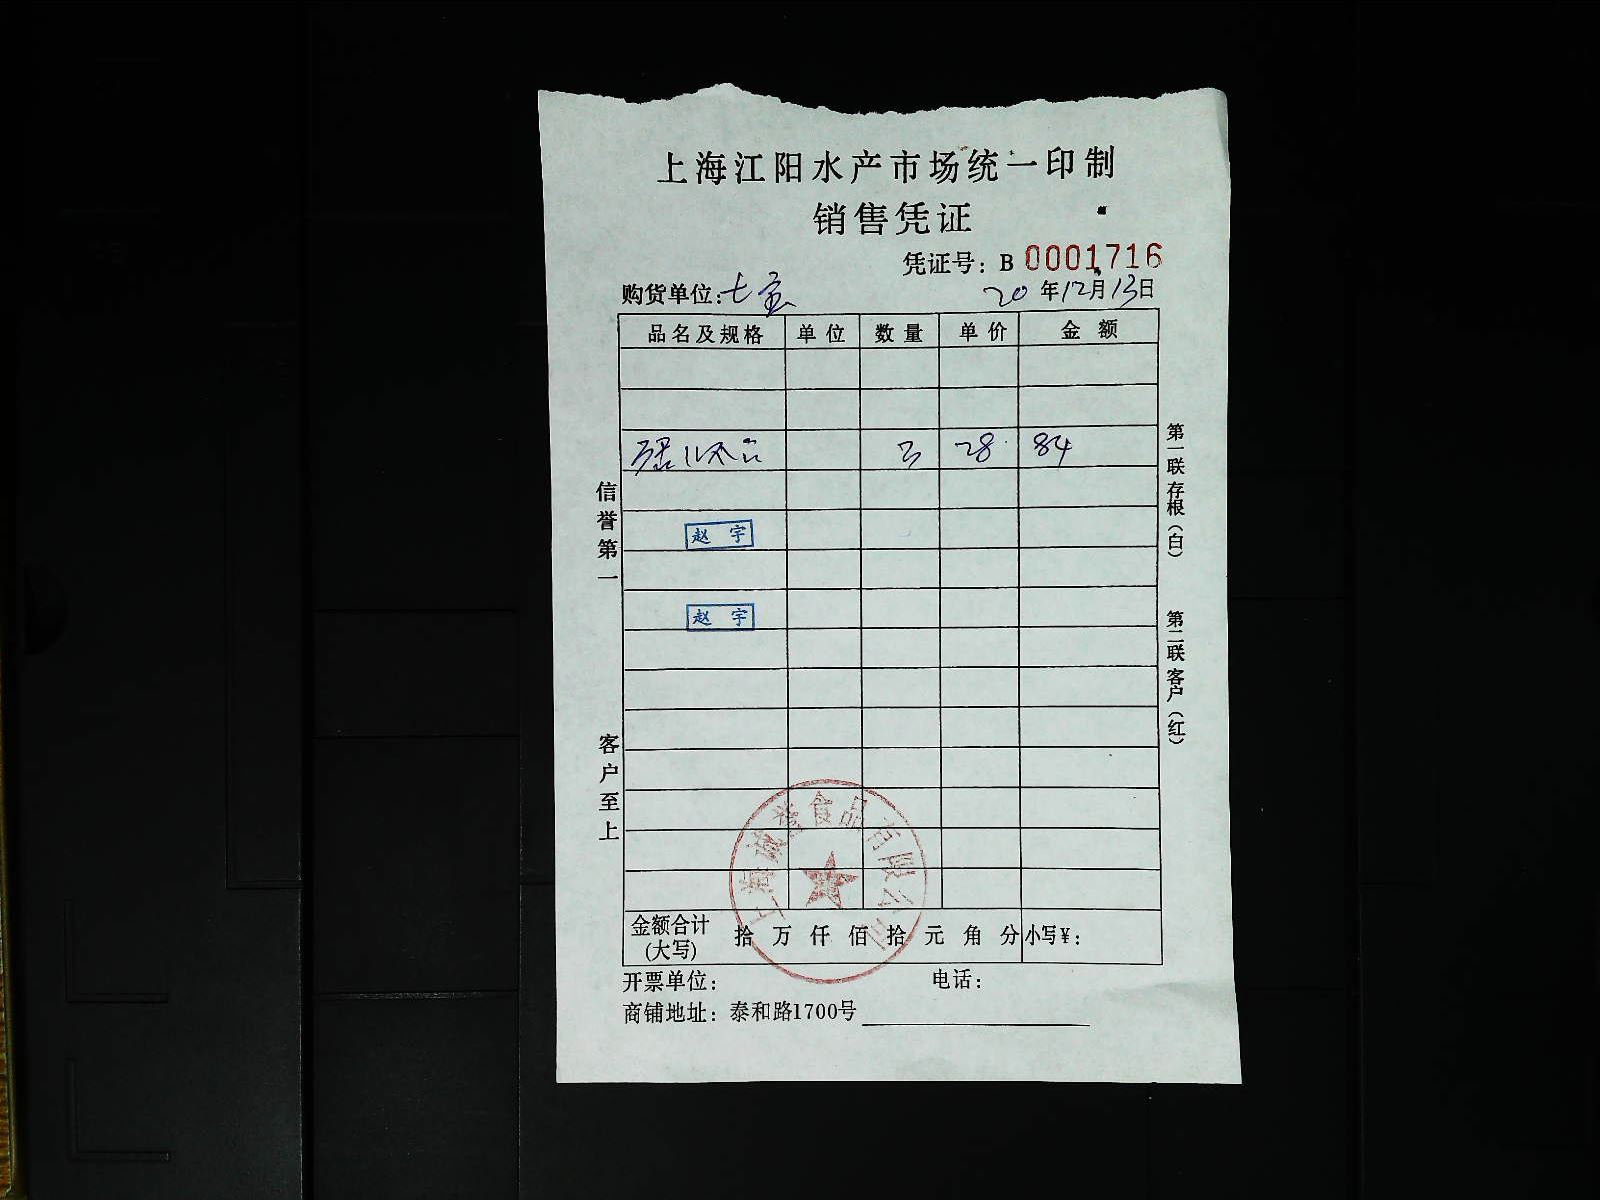 上海江阳水产市场统一印制
销售凭证
凭证号：B 0001716
购货单位：七宝 20年12月13日
品名及规格 单位 数量 单价 金额
3 28 84
赵宇
赵宇
信誉第一
客户至上
第一联存根（白）
第二联客户（红）
上海诚誉食品有限公司
金额合计(大写) 拾 万 仟 佰 拾 元 角 分 小写¥：
开票单位： 电话：
商铺地址：泰和路1700号